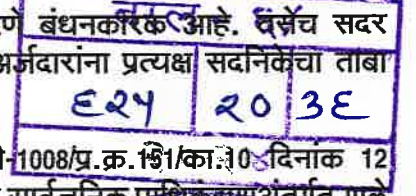 णे बंधनकारक आहे. तसेच सदर
अर्जदारांना प्रत्यक्ष सदनिकेचा ताबा
६२५ २० ३६
-1008/प्र.क्र.151/का.10 दिनांक 12